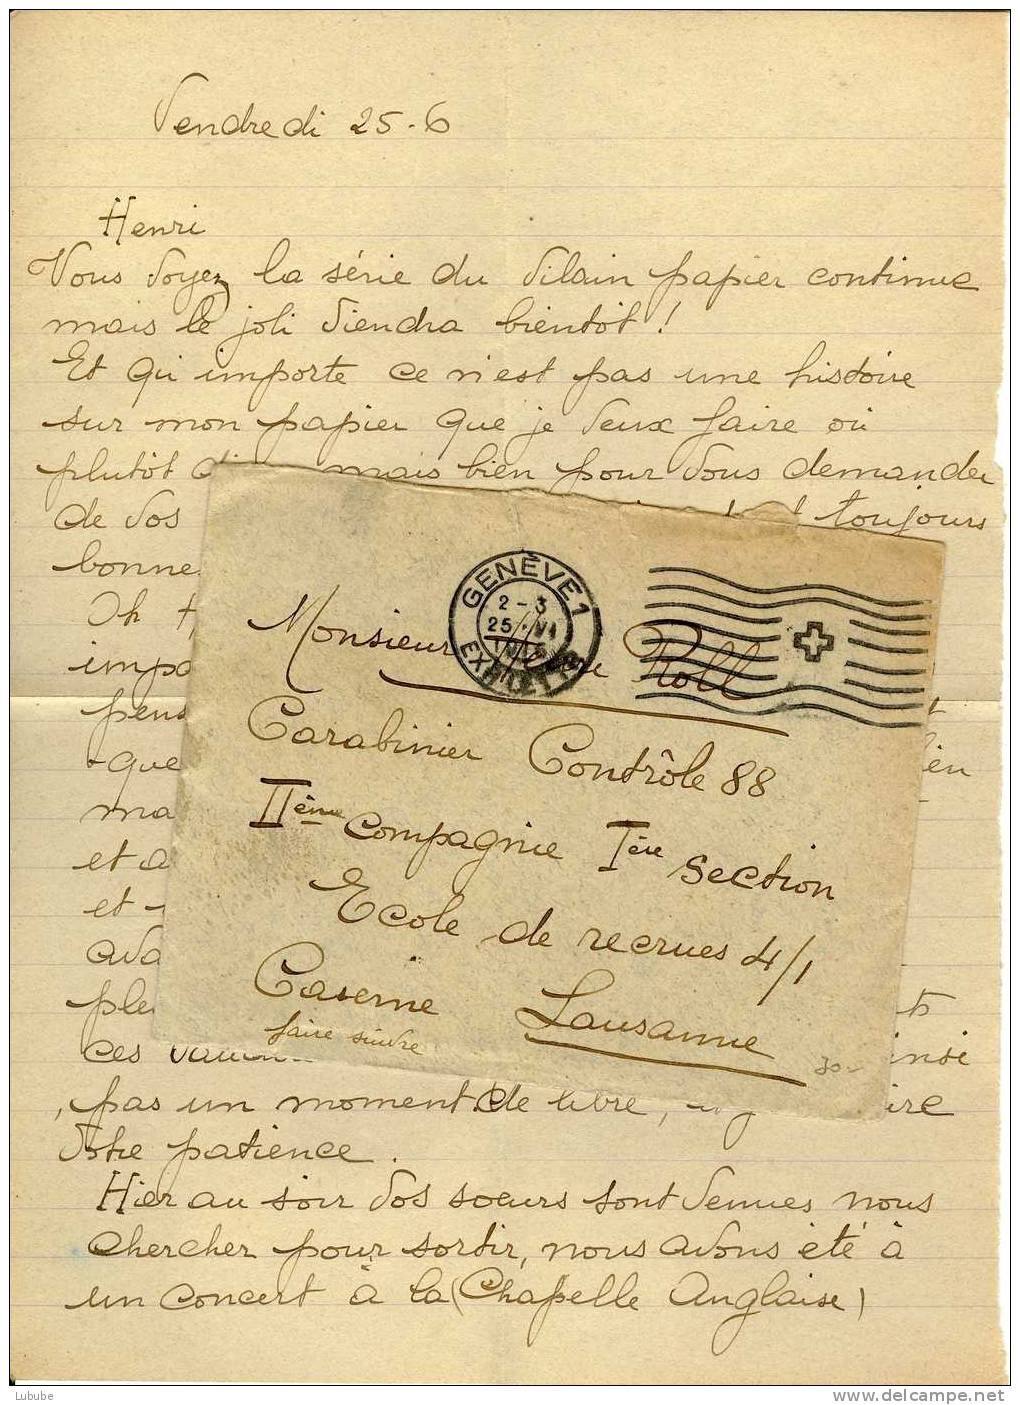 Vendredi 25-6
Henri
Vous voyez la série du vilain papier continue
mais le joli viendra bientôt !
Et qu'importe ce n'est pas une histoire
sur mon papier que je veux faire où
plutôt mais bien pour vous demander
de vos toujours
bonne
Oh
impo
pens
que ien
ma
et a
et
ava
ple ts
ces insi
pas un moment de libre, ire
votre patience.
Hier au soir vos sœurs sont venues nous
chercher pour sortir, nous avons été à
un concert à la (Chapelle Anglaise)
GENÈVE 1
2-3
25.VI
Monsieur Roll
Carabinier Contrôle 88
IIème compagnie Ière section
Ecole de recrues 4/1
Caserne Lausanne
faire suivre
30.-
Lubube
www.delcampe.net